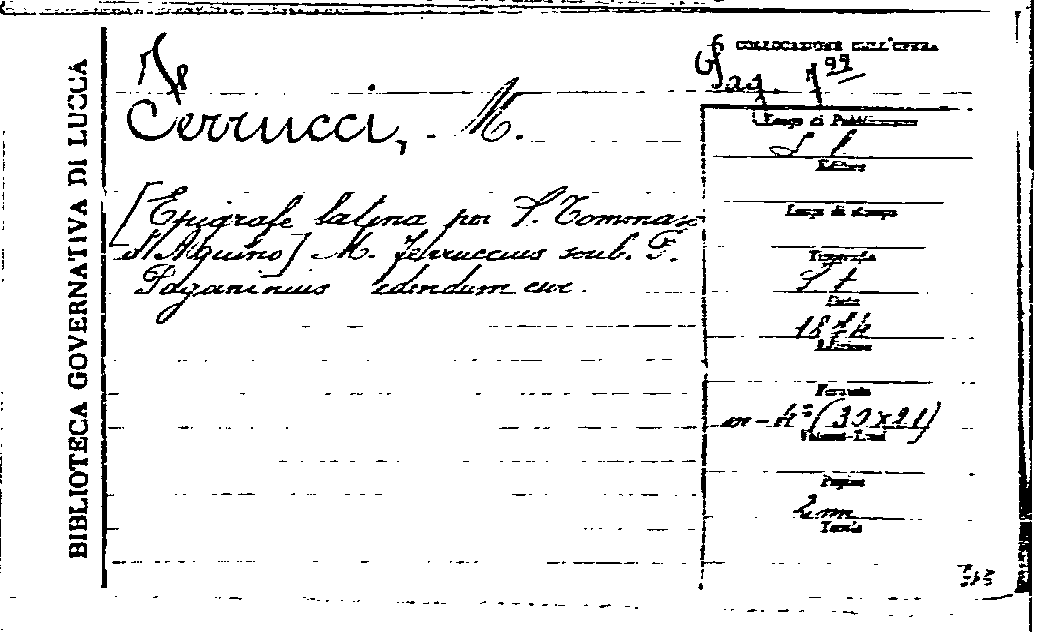 BIBLIOTECA GOVERNATIVA DI LUCCA
78
Ferrucci, M.
[Epigrafe latina per S. Tommaso
d'Aquino] M. Ferruccius scrib. F.
Paganinius edendum cur.
COLLOCAZIONE DELL'OPERA
Pag. 7 99
Luogo di Pubblicazione
S l
Editore
Luogo di stampa
Tipografia
S t
Data
1874
Edizione
Formato
in-4° (30x21)
Volumi-Tomi
Pagine
2 nn
Tavole